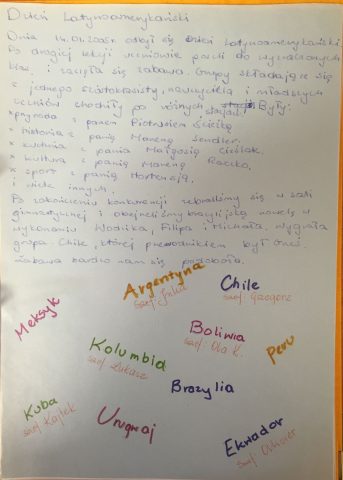 Dzień Latynoamerykański
Dnia 14.01.2005r odbył się Dzień Latynoamerykański
Po drugiej lekcji uczniowie poszli do wyznaczonych
klas i zaczęła się zabawa. Grupy składające się
z jednego szóstoklasisty, nauczyciela i młodszych
uczniów chodziły po różnych stacjach. Były:
* przyroda z panem Piotrusiem Ściciką
* historia z panią Mareną Sendler.
* kuchnia z panią Małgosią Cieślak.
* kultura z panią Mareną
* sport z panią Hortensją.
i wiele innych.
Po zakończeniu konkurencji zebraliśmy się w sali
gimnastycznej i obejrzeliśmy brazylijską nowelę w
wykonaniu Wodnika, Filipa i Michała, wygrała
grupa Chile, której przewodnikiem był
Zabawa bardzo nam się podobała.
Argentyna
szef
Chile
szef Grzegorz
Meksyk
Boliwia
szef: Ola K.
Kolumbia
szef Łukasz
Peru
Brazylia
Kuba
szef Kajtek
Urugwaj
Ekwador
szef